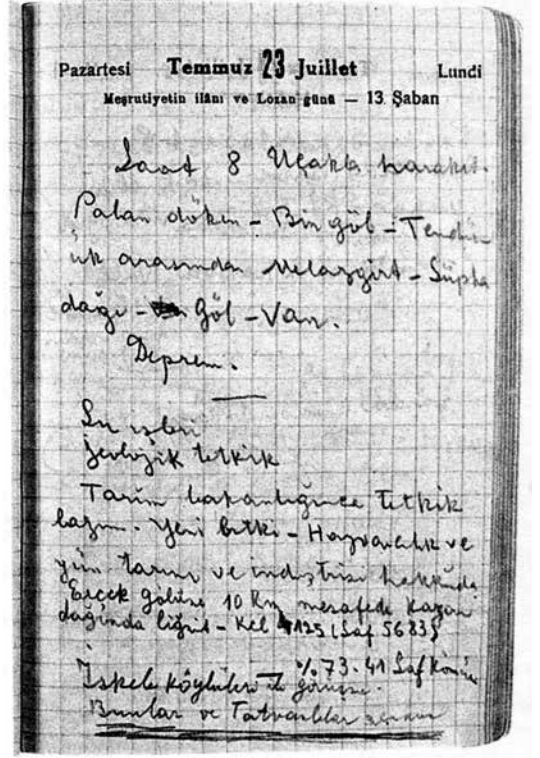 Pazartesi Temmuz 23 Juillet Lundi
Meşrutiyetin ilânı ve Lozan günü — 13 Şaban
Saat 8 Uçakla hareket.
Palan döken - Bin göl - Tendür
ük arasından Melazgirt - Süpha
dağı - Göl - Van.
Deprem.
Su işleri
Jeolojik tetkik
Tarım bakanlığınca tetkik
lazım. Yeni bitki - Hayvancılık ve
yün tarımı ve industrisi hakkında
Erçek gölüne 10 Km mesafede Kazan
dağında liğnit - Kel 4125 (Saf 5683)
%73.41 Saf kömür
İskele köylüleri ile görüşme.
Bunlar ve Tatvanlılar